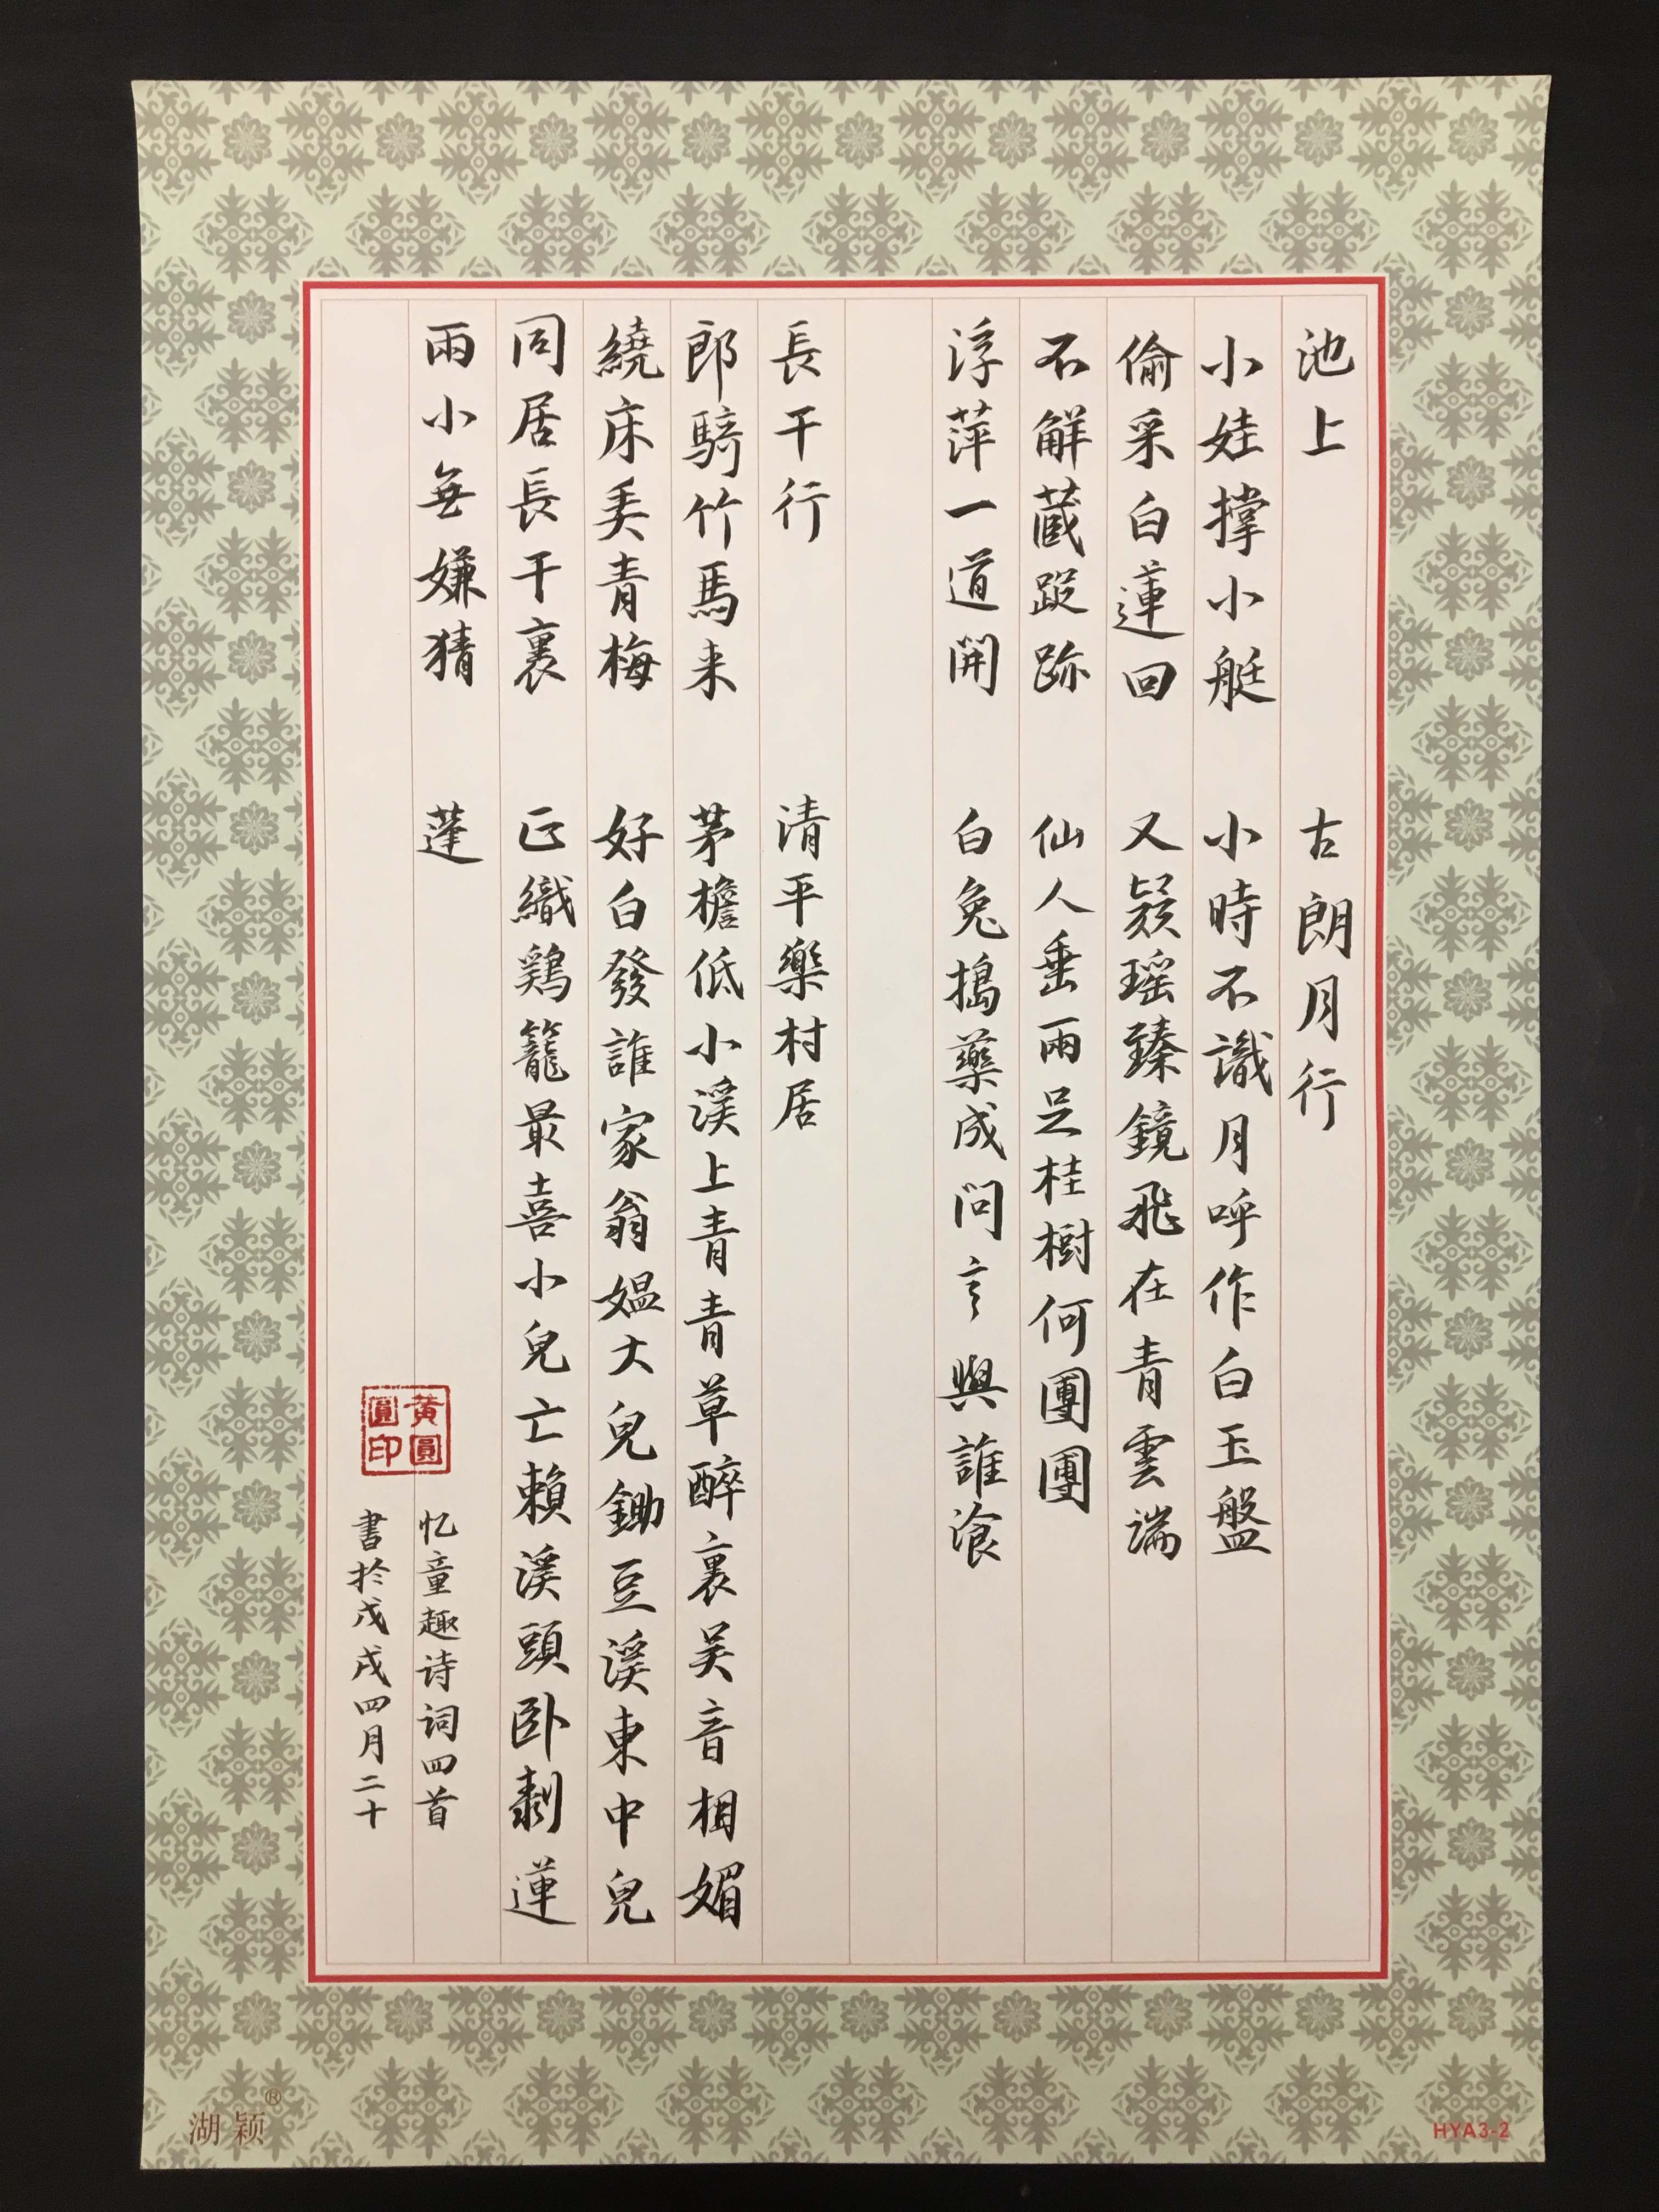 池上
小娃撑小艇
偷采白蓮回
不解蔵踨跡
浮萍一道開
古朗月行
小時不識月呼作白玉盤
又疑瑶臻鏡飛在青雲端
仙人垂兩足桂樹何團團
白兔搗藥成问言與誰飡
長干行
郎騎竹馬来
繞床弄青梅
同居長干裏
兩小無嫌猜
清平樂村居
茅檐低小溪上青青草醉裏吴音相媚
好白發誰家翁媪大兒鋤豆溪東中兒
正織鶏籠最喜小兒亡賴溪頭卧剥蓮
蓬
忆童趣诗词四首
書於戊戌四月二十
黄圓圓印
湖颖®
HYA3-2